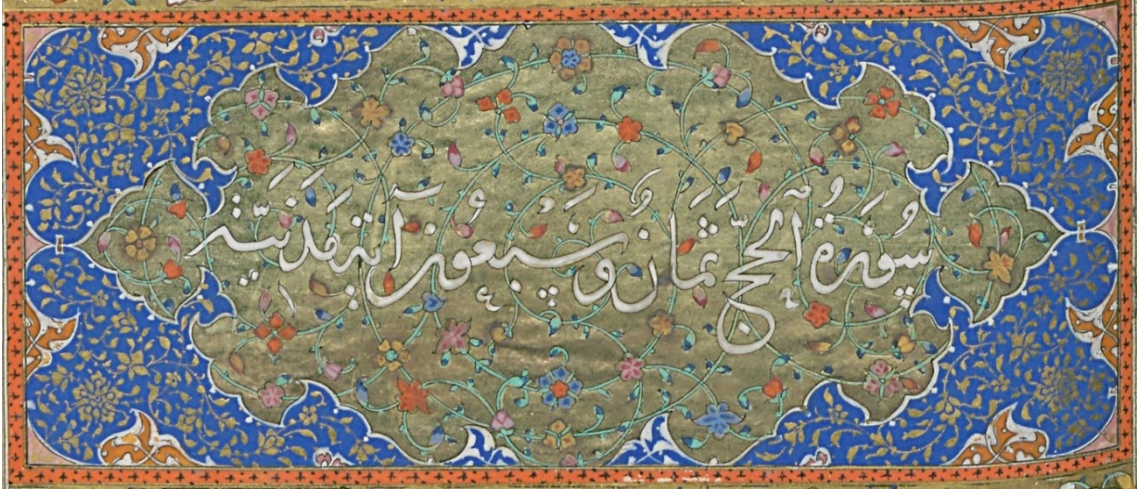 سُورَةُ الْحَجِّ ثَمَانٌ وَسَبْعُونَ آيَةً مَدَنِيَّةٌ